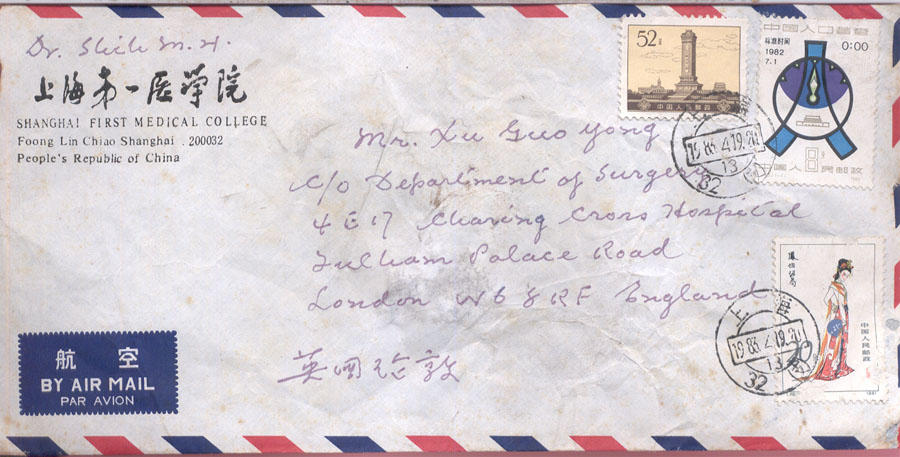 Dr. Shih M. H.
上海第一医学院
SHANGHAI FIRST MEDICAL COLLEGE
Foong Lin Chiao Shanghai . 200032
People's Republic of China
52
中国人民邮政
中国人口普查
标准时间
1982
7.1
0:00
8
中国人民邮政
1983.4.19.20
13
32
Mr. Xu Guo Yong
c/o Department of Surgery
4 E 17 Charing Cross Hospital
Fulham Palace Road
London W6 8RF England
英國
航空
BY AIR MAIL
PAR AVION
中国人民邮政
上海
1983.4.19.20
13
32